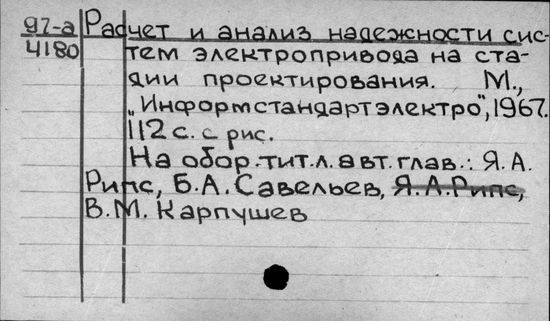 97-а Расчет и анализ надежности сис-
4180 тем электропривода на ста-
дии проектирования. М.,
„Информстандартэлектро", 1967.
112 с. с рис.
На обор. тит. л. авт. глав.: Я. А.
Рипс, Б. А. Савельев, Я. А. Рипс,
В. М. Карпушев